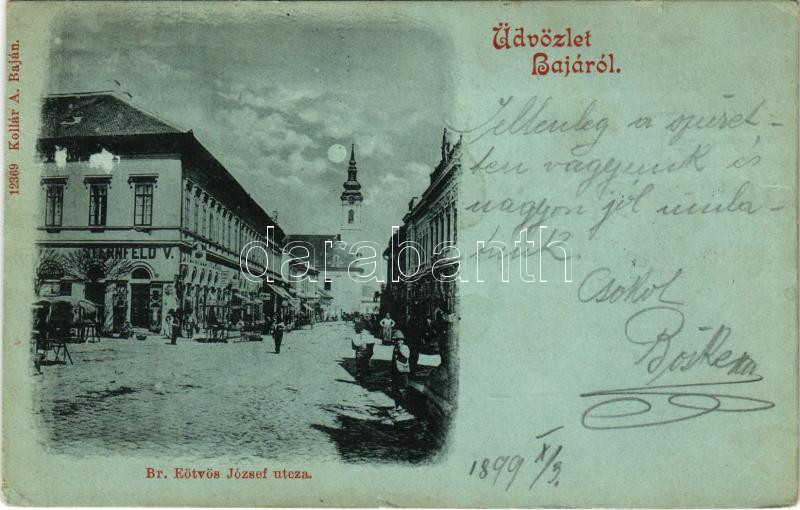 12369 Kollár A. Baján.
Üdvözlet
Bajáról.
Jellenleg a szüret-
ten vagyunk és
nagyon jól mula-
tunk.
Csókol
Böske
1899 X/3.
STERNFELD V.
darabanth.com
Br. Eötvös József utcza.